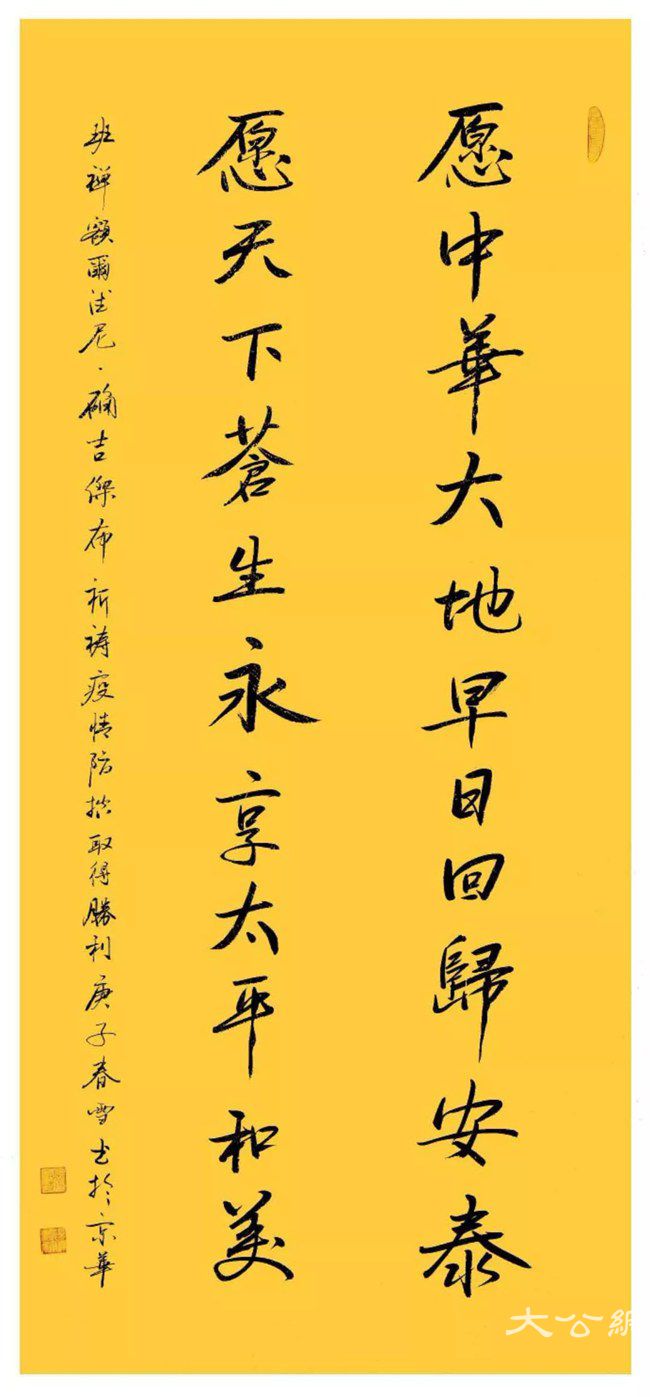 愿中華大地早日回歸安泰
愿天下蒼生永享太平和美
班禅额爾德尼·确吉傑布祈禱疫情防控取得勝利庚子春雪书於京華
大公網